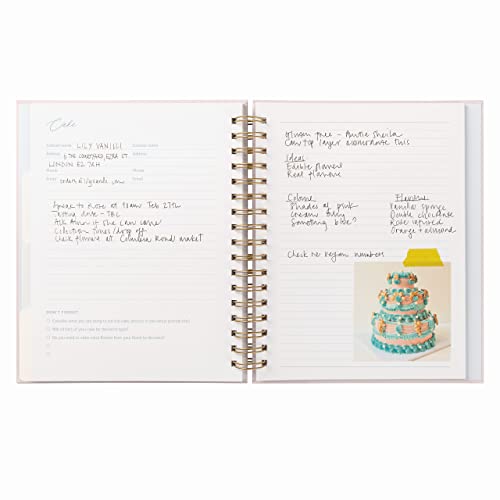 Cake
Company name LILY VANILLI Company name
Address 6 THE COURTYARD, EZRA ST Address
LONDON E2 7RH
Phone Phone
Email Email
Speak to Rose at 11am Feb 27th
Tasting date - TBC
Ask Ann if she can come
Collection times / drop off
Check flowers at Columbia Road market
DON'T FORGET
Gluten free - Auntie Sheila
Can top layer accommodate this
Ideas
Edible flowers
Real flowers
Colours Flavours
Shades of pink Vanilla sponge
Cream Double chocolate
Something blue? Rose infused
Orange + almond
Check re vegan numbers